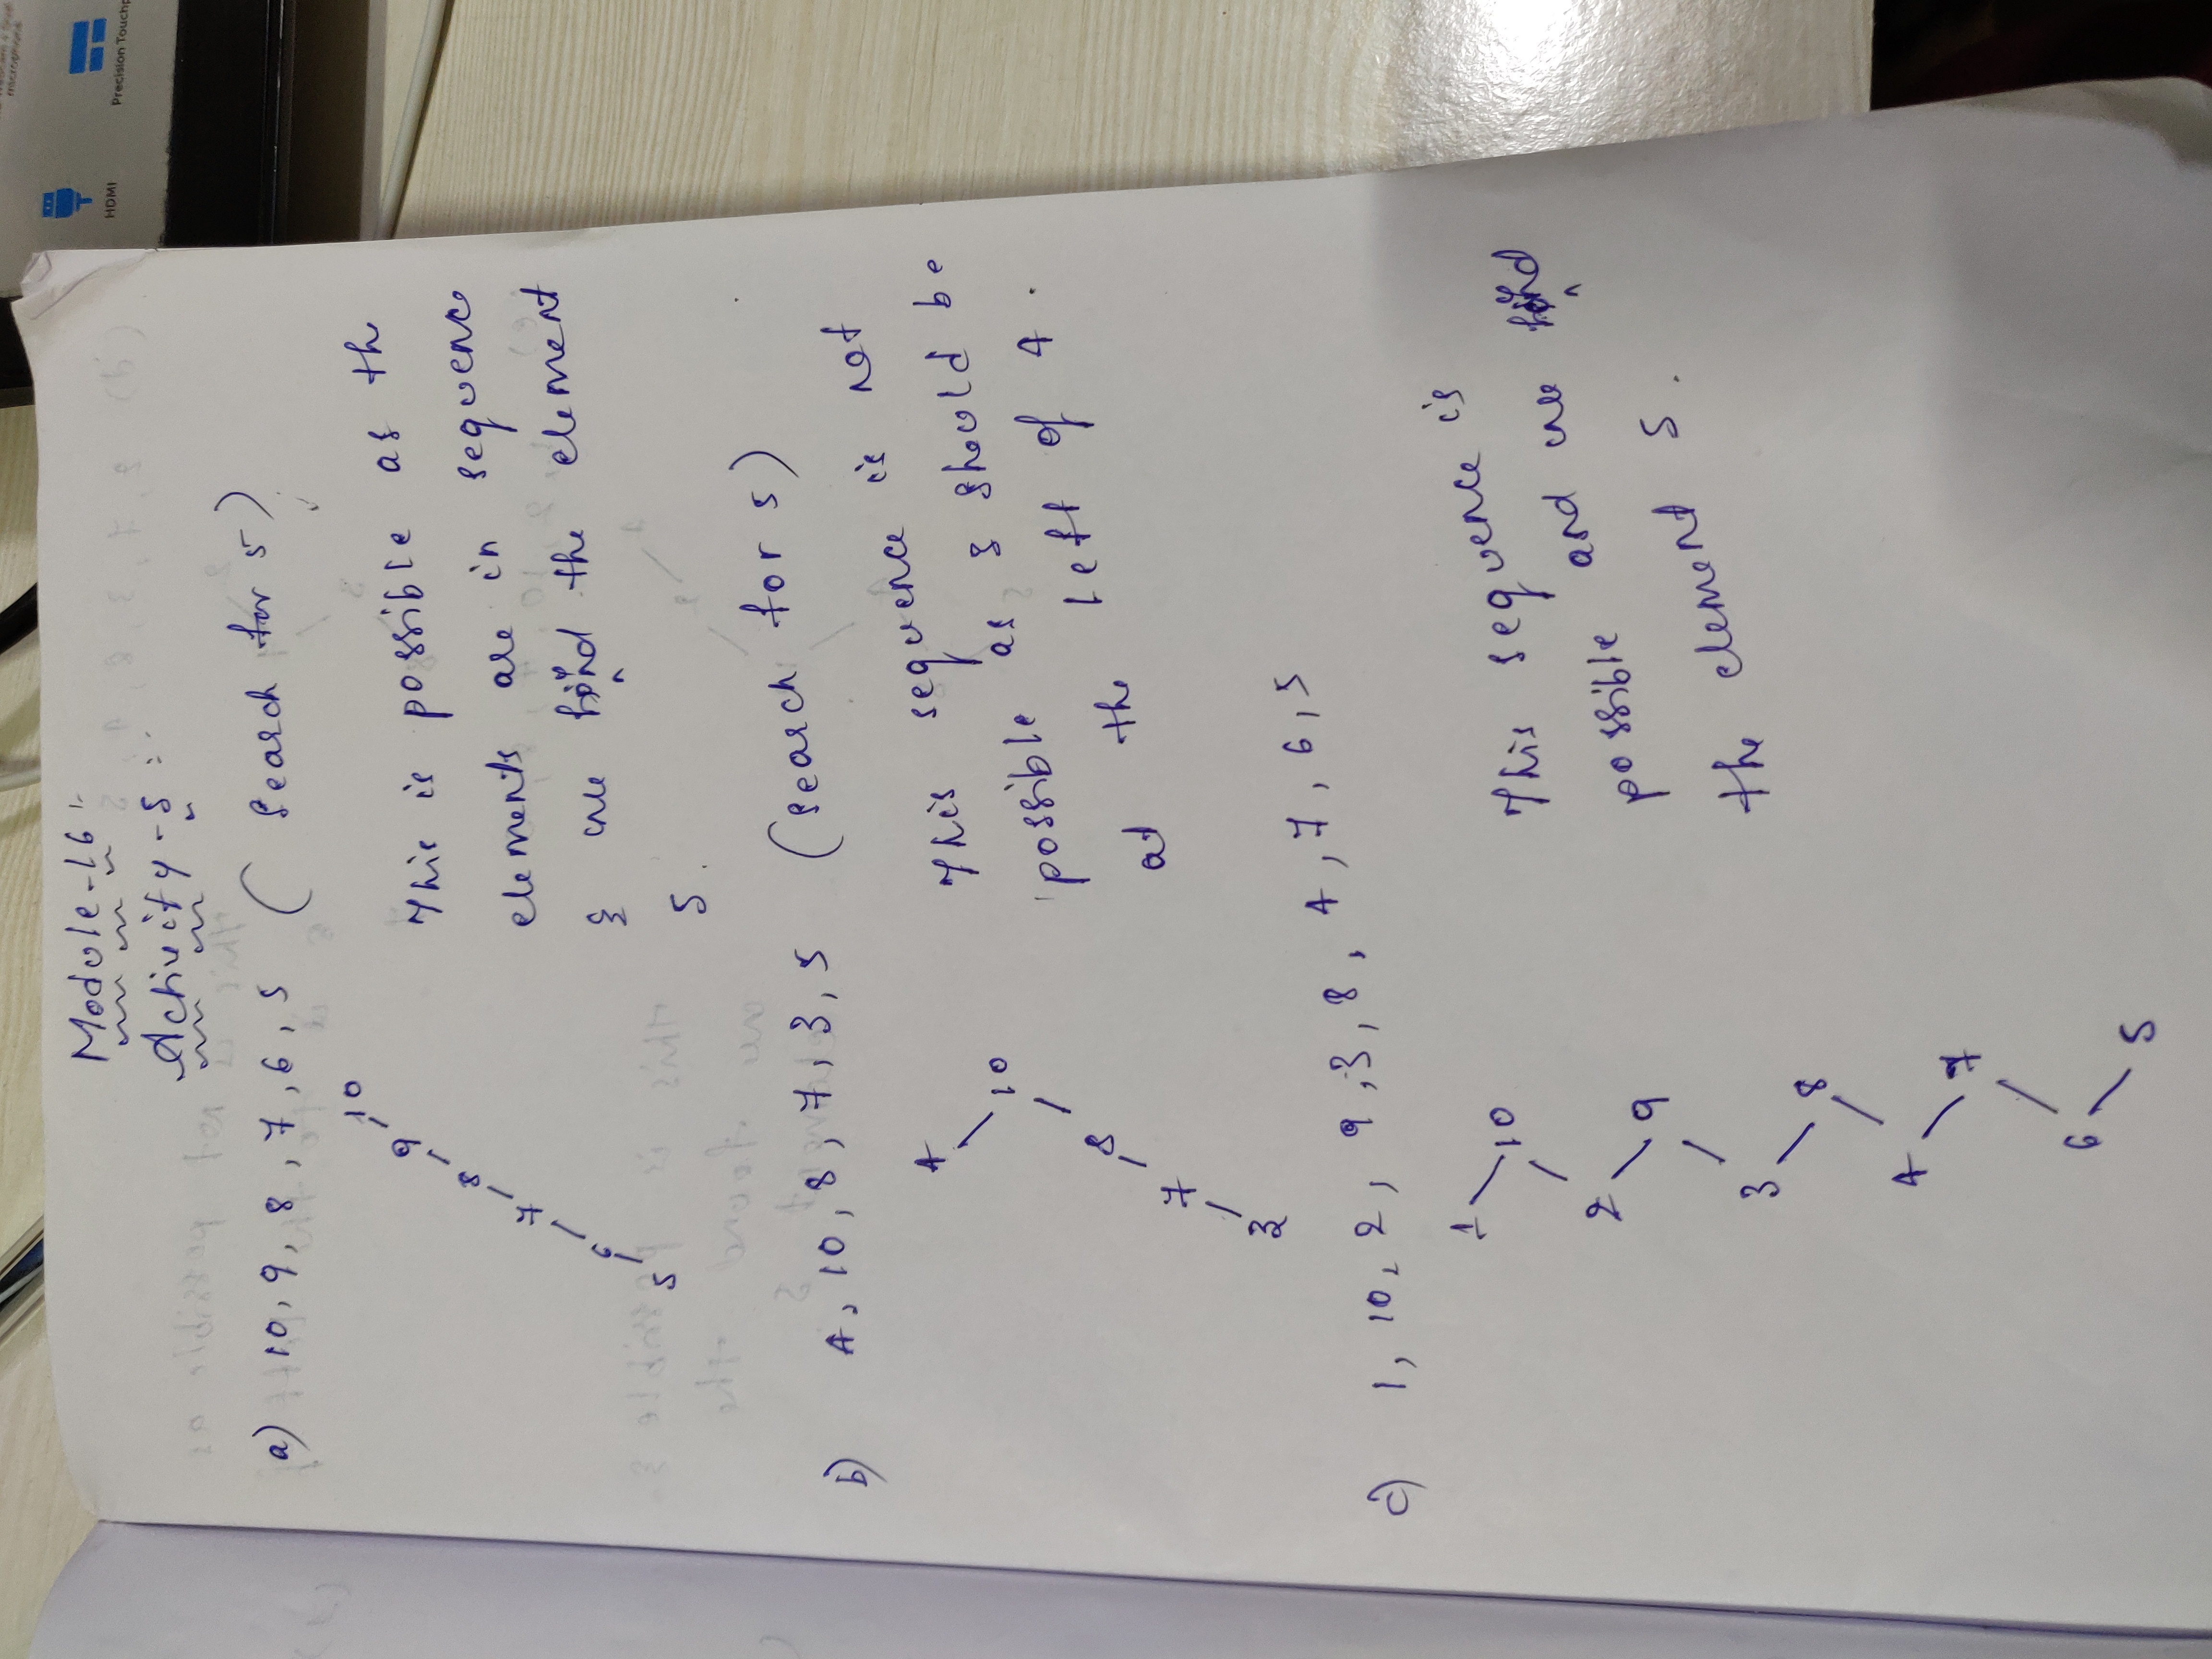 Module-16 :-
Activity-5 :-
a) 10, 9, 8, 7, 6, 5 ( Search for 5 )
10
9
8
7
6
5
This is possible as the
elements are in sequence
& we find the element
5.
b) 4, 10, 8, 7, 3, 5 ( Search for 5 )
4
10
8
7
3
This sequence is not
possible as 3 should be
at the left of 4.
c) 1, 10, 2, 9, 3, 8, 4, 7, 6, 5
1
10
2
9
3
8
4
7
6
5
This sequence is
possible and we find
the element 5.
microphone
HDMI
Precision Touchp